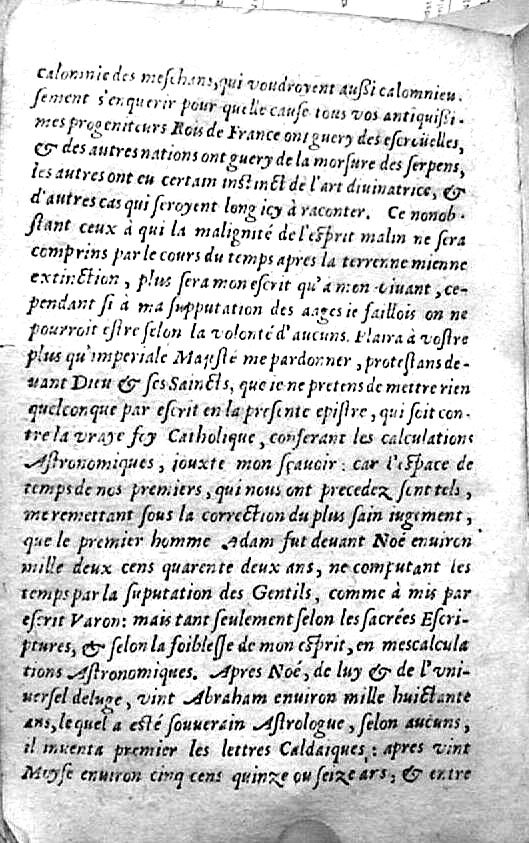 calomnie des meschans, qui voudroyent aussi calomnieu-
sement s'enquerir pour quelle cause tous vos antiquissi-
mes progeniteurs Rois de France ont guery des escroüelles,
& des autres nations ont guery de la morsure des serpens,
les autres ont eu certain instinct de l'art divinatrice, &
d'autres cas qui seroyent long icy à raconter. Ce nonob-
stant ceux à qui la malignité de l'esprit malin ne sera
comprins par le cours du temps apres la terrenne mienne
extinction, plus sera mon escrit qu'a mon vivant, ce-
pendant si à ma supputation des aages ie faillois on ne
pourroit estre selon la volonté d'aucuns. Plaira à vostre
plus qu'imperiale Majesté me pardonner, protestans de-
uant Dieu & ses Saincts, que ie ne pretens de mettre rien
quelconque par escrit en la presente epistre, qui soit con-
tre la vraye foy Catholique, conferant les calculations
Astronomiques, iouxte mon sçavoir: car l'espace de
temps de nos premiers, qui nous ont precedez sont tels,
me remettant sous la correction du plus sain iugement,
que le premier homme Adam fut devant Noé environ
mille deux cens quarente deux ans, ne computant les
temps par la suputation des Gentils, comme à mis par
escrit Varon: mais tant seulement selon les sacrées Escri-
ptures, & selon la foiblesse de mon esprit, en mes calcula
tions Astronomiques. Apres Noé, de luy & de l'vni-
uersel deluge, vint Abraham environ mille huictante
ans, lequel a esté souverain Astrologue, selon aucuns,
il inventa premier les lettres Caldaiques: apres vint
Moyse environ cinq cens quinze ou seize ans, & entre